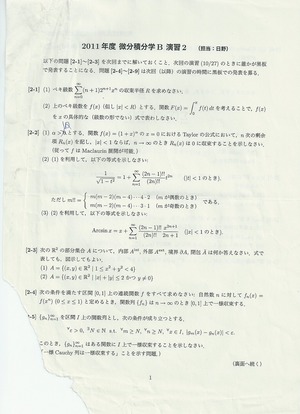 2011年度 微分積分学B 演習2 (担当:日野)
以下の問題 [2-1]~[2-3] を次回までに解いておくこと.次回の演習 (10/27) のときに誰かが黒板
で発表することになる.問題 [2-4]~[2-9] は次回 (以降) の演習の時間に黒板での発表を募る.
[2-1] (1) べき級数 \sum_{n=0}^{\infty} (n+1)2^{n+1}x^n の収束半径 R を求めなさい.
(2) 上のべき級数を f(x) (但し |x| < R) とする.関数 F(x) = \int_0^x f(t) dt を考えることで,f(x)
を x の具体的な (級数の形でない) 式で表わしなさい.
[2-2] (1) とする.関数 f(x) = (1+x)^α の x = 0 における Taylor の公式において,n 次の剰余
項 R_n(x) を記し,|x| < 1 ならば,n → ∞ のとき R_n(x) は 0 に収束することを示しなさい.
(従って f は Maclaurin 展開が可能.)
(2) (1) を利用して,以下の等式を示しなさい:
\frac{1}{\sqrt{1-x^2}} = 1 + \sum_{n=1}^{\infty} \frac{(2n-1)!!}{(2n)!!} x^{2n} (|x| < 1 のとき).
ただし m!! = { m(m-2)(m-4)···4·2 (m が偶数のとき)
m(m-2)(m-4)···3·1 (m が奇数のとき) である.
(3) (2) を利用して,以下の等式を示しなさい:
Arcsin x = x + \sum_{n=1}^{\infty} \frac{(2n-1)!!}{(2n)!!} \frac{x^{2n+1}}{2n+1} (|x| < 1 のとき).
[2-3] 次の R² の部分集合 A について,内部 A^{int},外部 A^{ext},境界 ∂A,閉包 Ā は何か答えなさい.式で
表しても,図示してもよい.
(1) A = {(x, y) ∈ R² | 1 ≤ x² + y² < 4}
(2) A = {(x, y) ∈ R² | |x| + |y| ≤ 2 かつ y ≠ 0}
[2-4] 次の条件を満たす区間 [0, 1] 上の連続関数 f をすべて求めなさい: 自然数 n に対して f_n(x) =
f(x^n) (0 ≤ x ≤ 1) と定めるとき,関数列 {f_n} は n → ∞ のとき [0, 1] 上で一様収束する.
を区間 I 上の関数列とし,次の条件が成り立つとする.
∀ε > 0, ∃N ∈ N s.t. ∀m ≥ N, ∀n ≥ N, ∀x ∈ I, |g_m(x) − g_n(x)| < ε.
このとき,{g_n} はある関数に I 上で一様収束することを示しなさい.
「一様 Cauchy 列は一様収束する」ことを示す問題.)
(裏面へ続く)
1